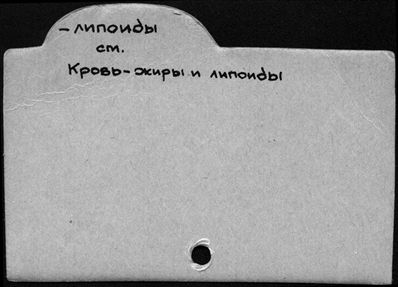 - липоиды
см.
Кровь-жиры и липоиды